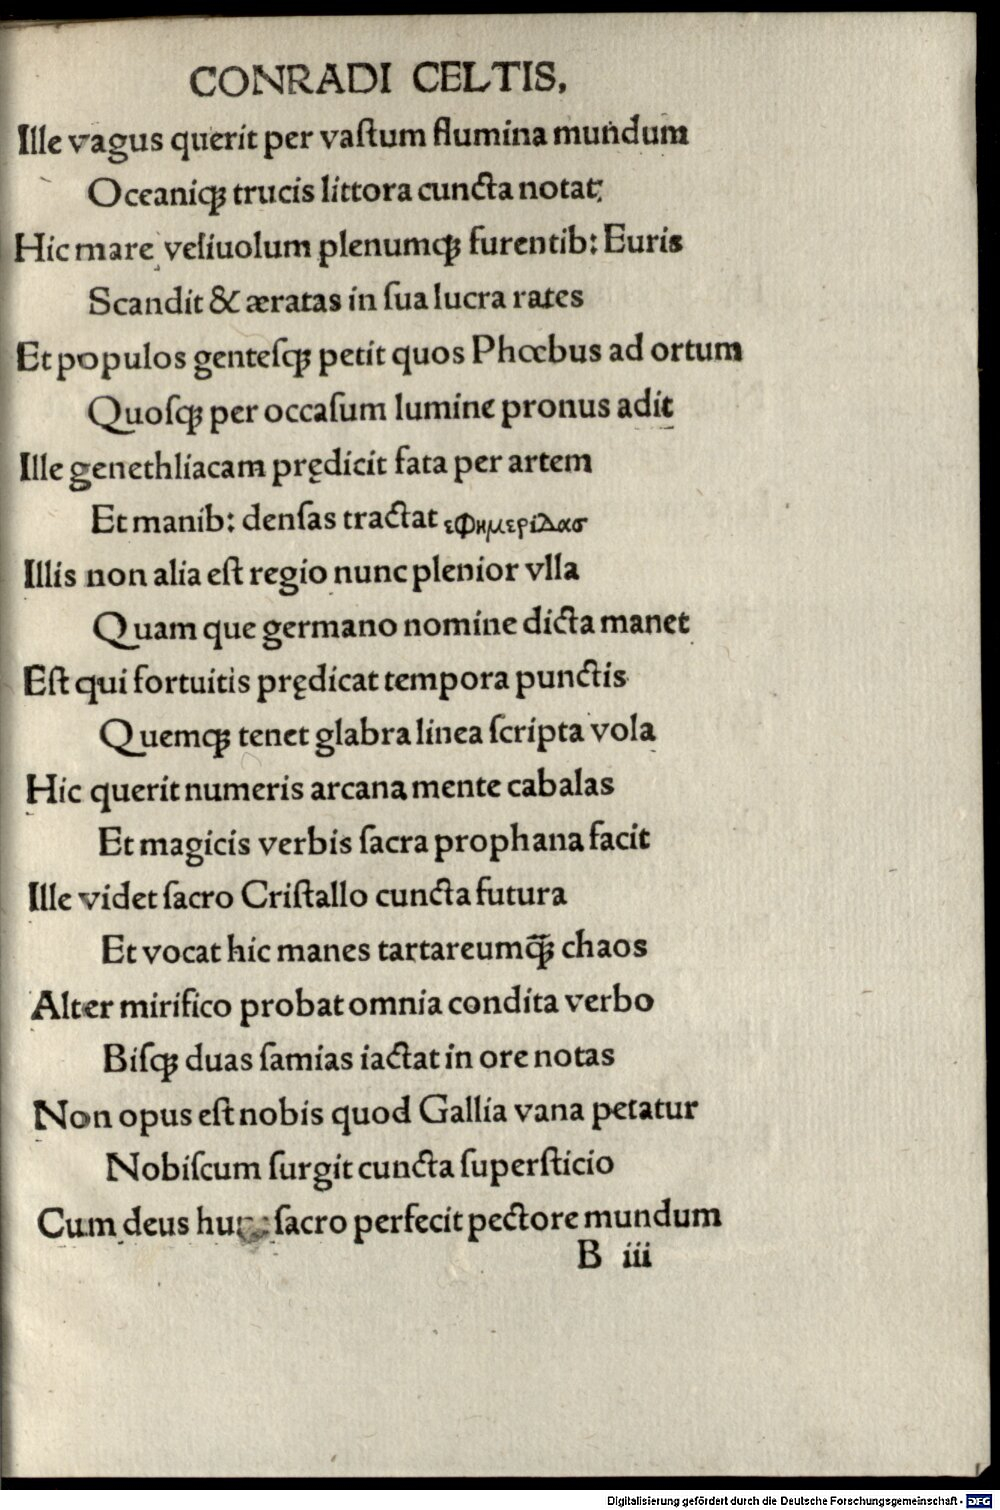 CONRADI CELTIS,
Ille vagus querit per vaſtum flumina mundum
Oceaniqꝫ trucis littora cuncta notat;
Hic mare veliuolum plenumqꝫ furentib: Euris
Scandit & æratas in ſua lucra rates
Et populos genteſqꝫ petit quos Phœbus ad ortum
Quoſqꝫ per occaſum lumine pronus adit
Ille genethliacam prędicit fata per artem
Et manib: denſas tractat εφημεριδασ
Illis non alia eſt regio nunc plenior vlla
Quam que germano nomine dicta manet
Eſt qui fortuitis prędicat tempora punctis
Quemqꝫ tenet glabra linea ſcripta vola
Hic querit numeris arcana mente cabalas
Et magicis verbis ſacra prophana facit
Ille videt ſacro Criſtallo cuncta futura
Et vocat hic manes tartareumq̄ꝫ chaos
Alter mirifico probat omnia condita verbo
Biſqꝫ duas ſamias iactat in ore notas
Non opus eſt nobis quod Gallia vana petatur
Nobiſcum ſurgit cuncta ſuperſticio
Cum deus ſacro perfecit pectore mundum
B iii
Digitalisierung gefördert durch die Deutsche Forschungsgemeinschaft - DFG